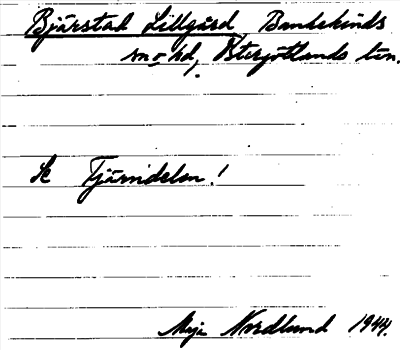 Bjärstad Lillgård, Bankekinds
sn o hd, Östergötlands län.
Se Fjärndelen!
Maja Nordlund 1944.